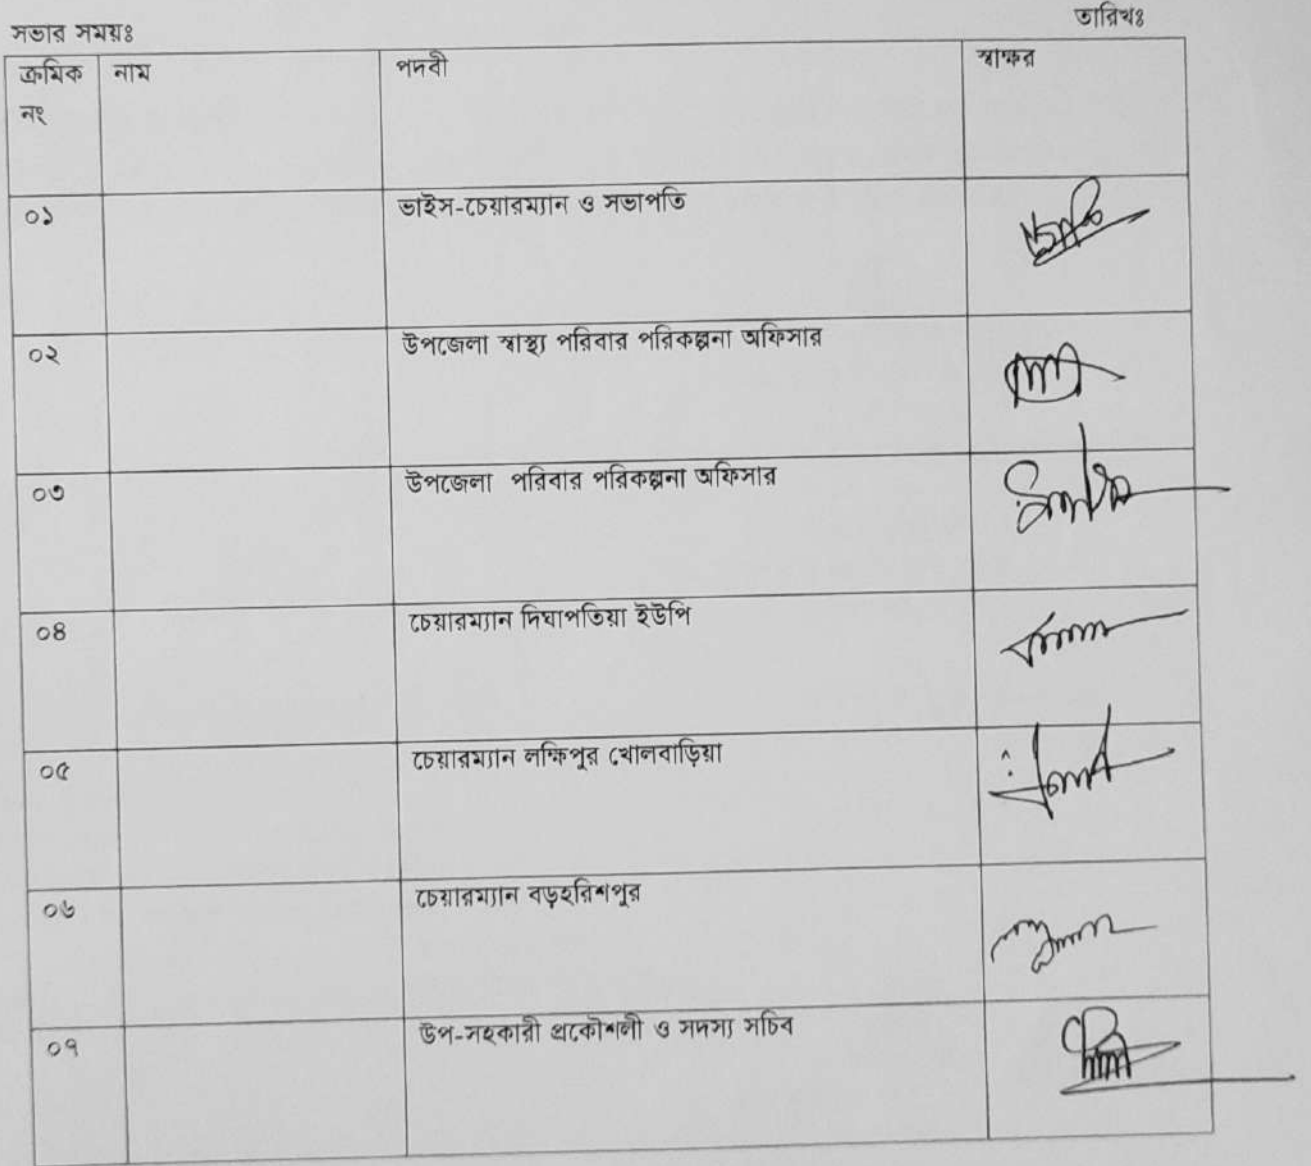 তারিখঃ
সভার সময়ঃ
ক্রমিক নাম পদবী স্বাক্ষর
নং
০১ ভাইস-চেয়ারম্যান ও সভাপতি
০২ উপজেলা স্বাস্থ্য পরিবার পরিকল্পনা অফিসার
০৩ উপজেলা পরিবার পরিকল্পনা অফিসার
০৪ চেয়ারম্যান দিঘাপতিয়া ইউপি
০৫ চেয়ারম্যান লক্ষিপুর খোলবাড়িয়া
০৬ চেয়ারম্যান বড়হরিশপুর
০৭ উপ-সহকারী প্রকৌশলী ও সদস্য সচিব